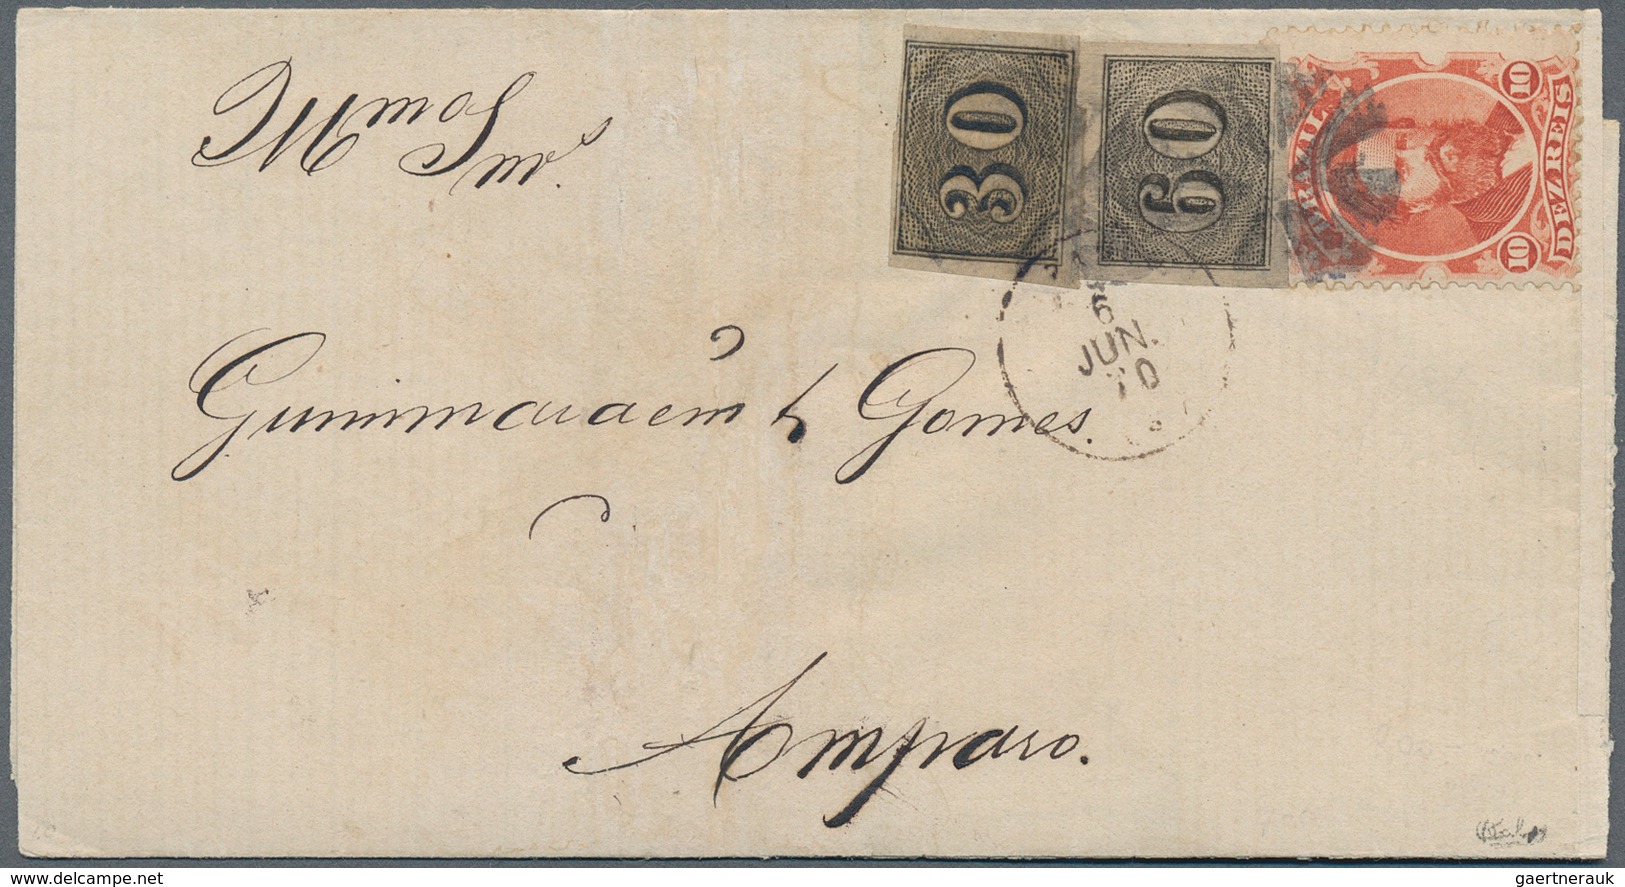 30
60
BRAZIL
10
10
DEZ REIS
Illmos Snrs.
6
JUN.
70
Guimmaraẽm & Gomes.
Amparo.
www.delcampe.net
gaertnerauk